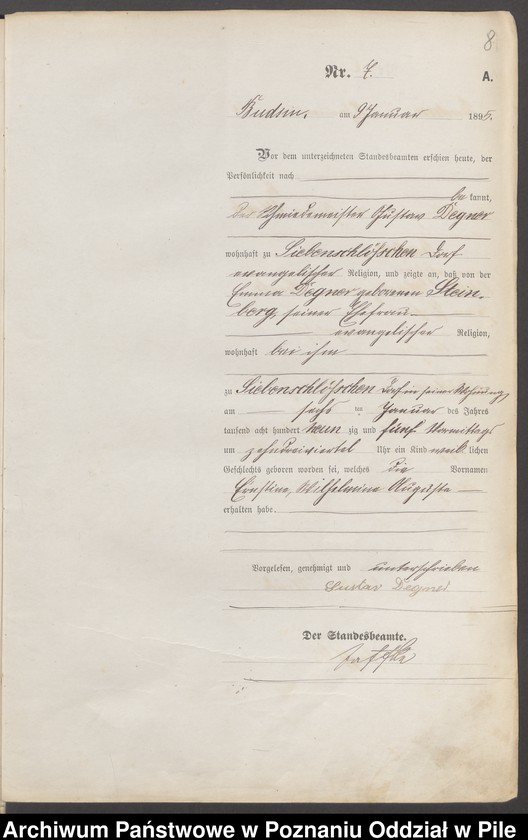 8
Nr. 7.
A.
Budsin, am 9 Januar 1895.
Vor dem unterzeichneten Standesbeamten erschien heute, der
Persönlichkeit nach
be kannt,
der Schmiedemeister Gustav Degner
wohnhaft zu Siebenschlößchen Dorf
evangelischer Religion, und zeigte an, daß von der
Emma Degner geborenen Stein-
berg, seiner Ehefrau
evangelischer Religion,
wohnhaft bei ihm
zu Siebenschlößchen Dorf in seiner Wohnung
am sechs ten Januar des Jahres
tausend acht hundert neun zig und fünf Vormittags
um zehndreiviertel Uhr ein Kind weib lichen
Geschlechts geboren worden sei, welches die Vornamen
Ernstine, Wilhelmine Auguste
erhalten habe.
Vorgelesen, genehmigt und unterschrieben
Gustav Degner
Der Standesbeamte.
Archiwum Państwowe w Poznaniu Oddział w Pile